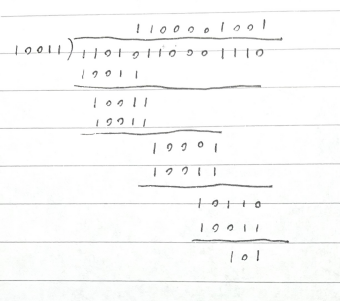 1100001001
10011)11010110001110
10011
10011
10011
10001
10011
10110
10011
101